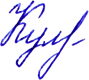 Кул